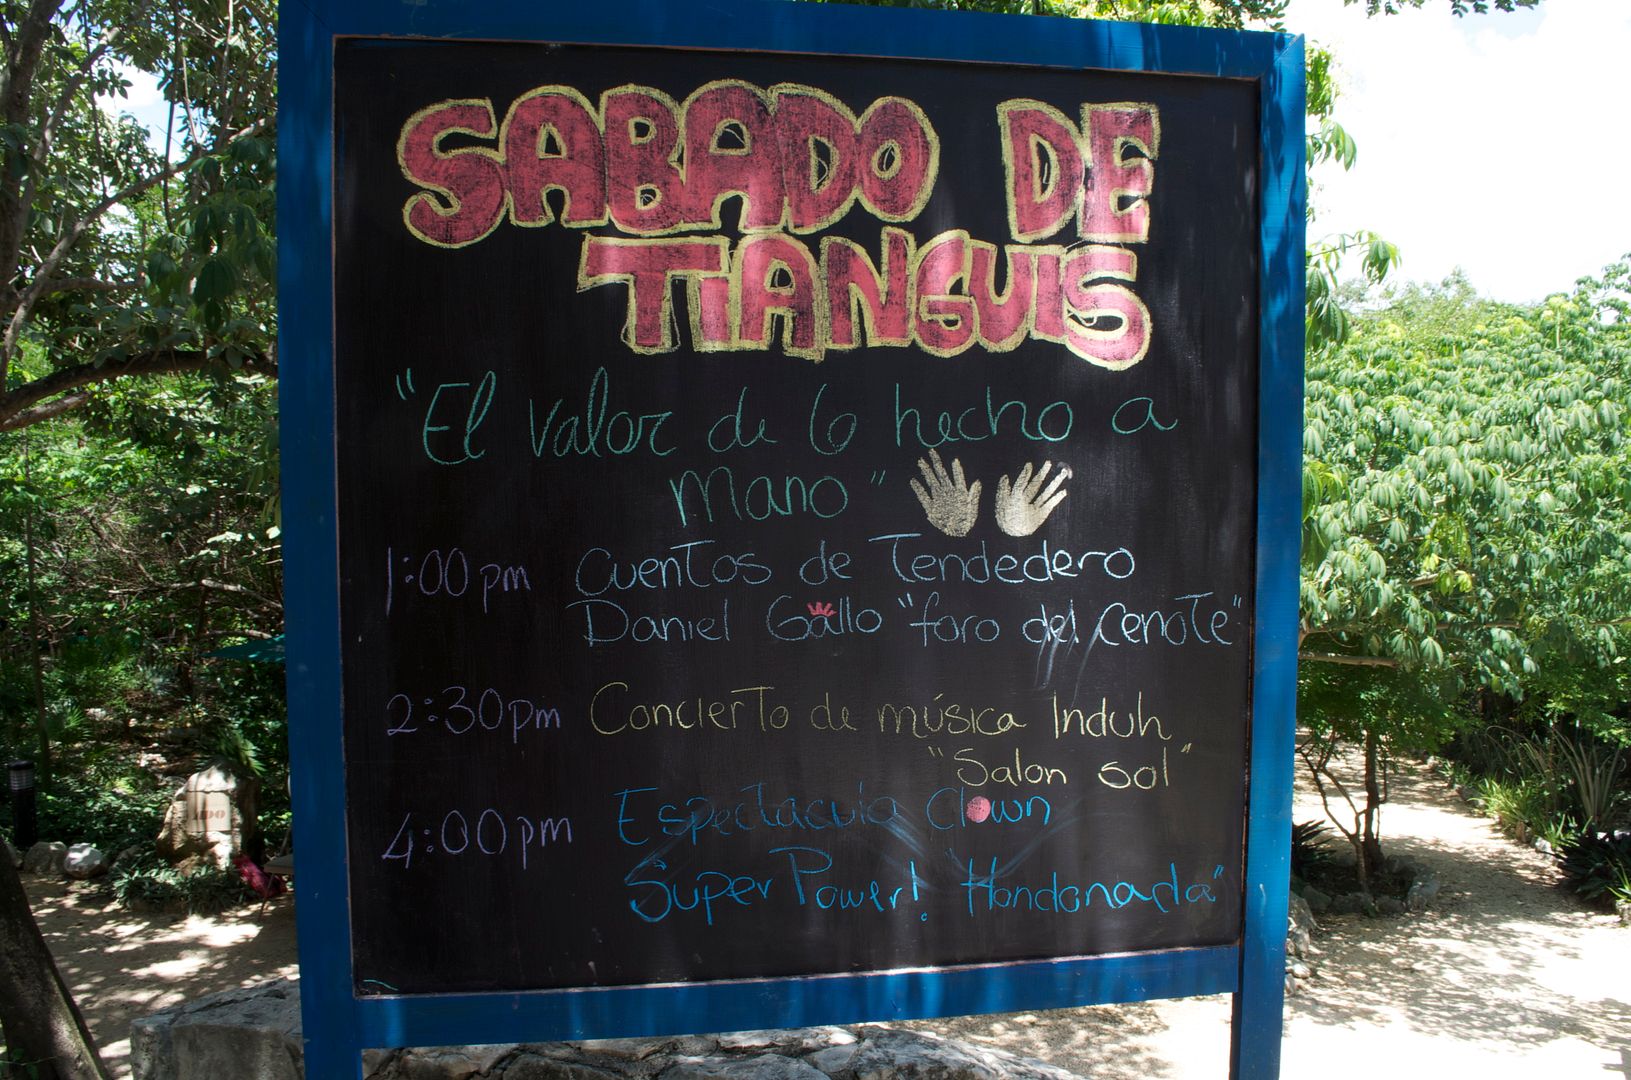 SABADO DE
TIANGUIS
"El valor de lo hecho a
mano"
1:00 pm Cuentos de Tendedero
Daniel Gallo "foro del cenote"
2:30pm Concierto de música Induh
"Salon sol"
4:00pm Espectaculo Clown
Super Power! Hondonada"